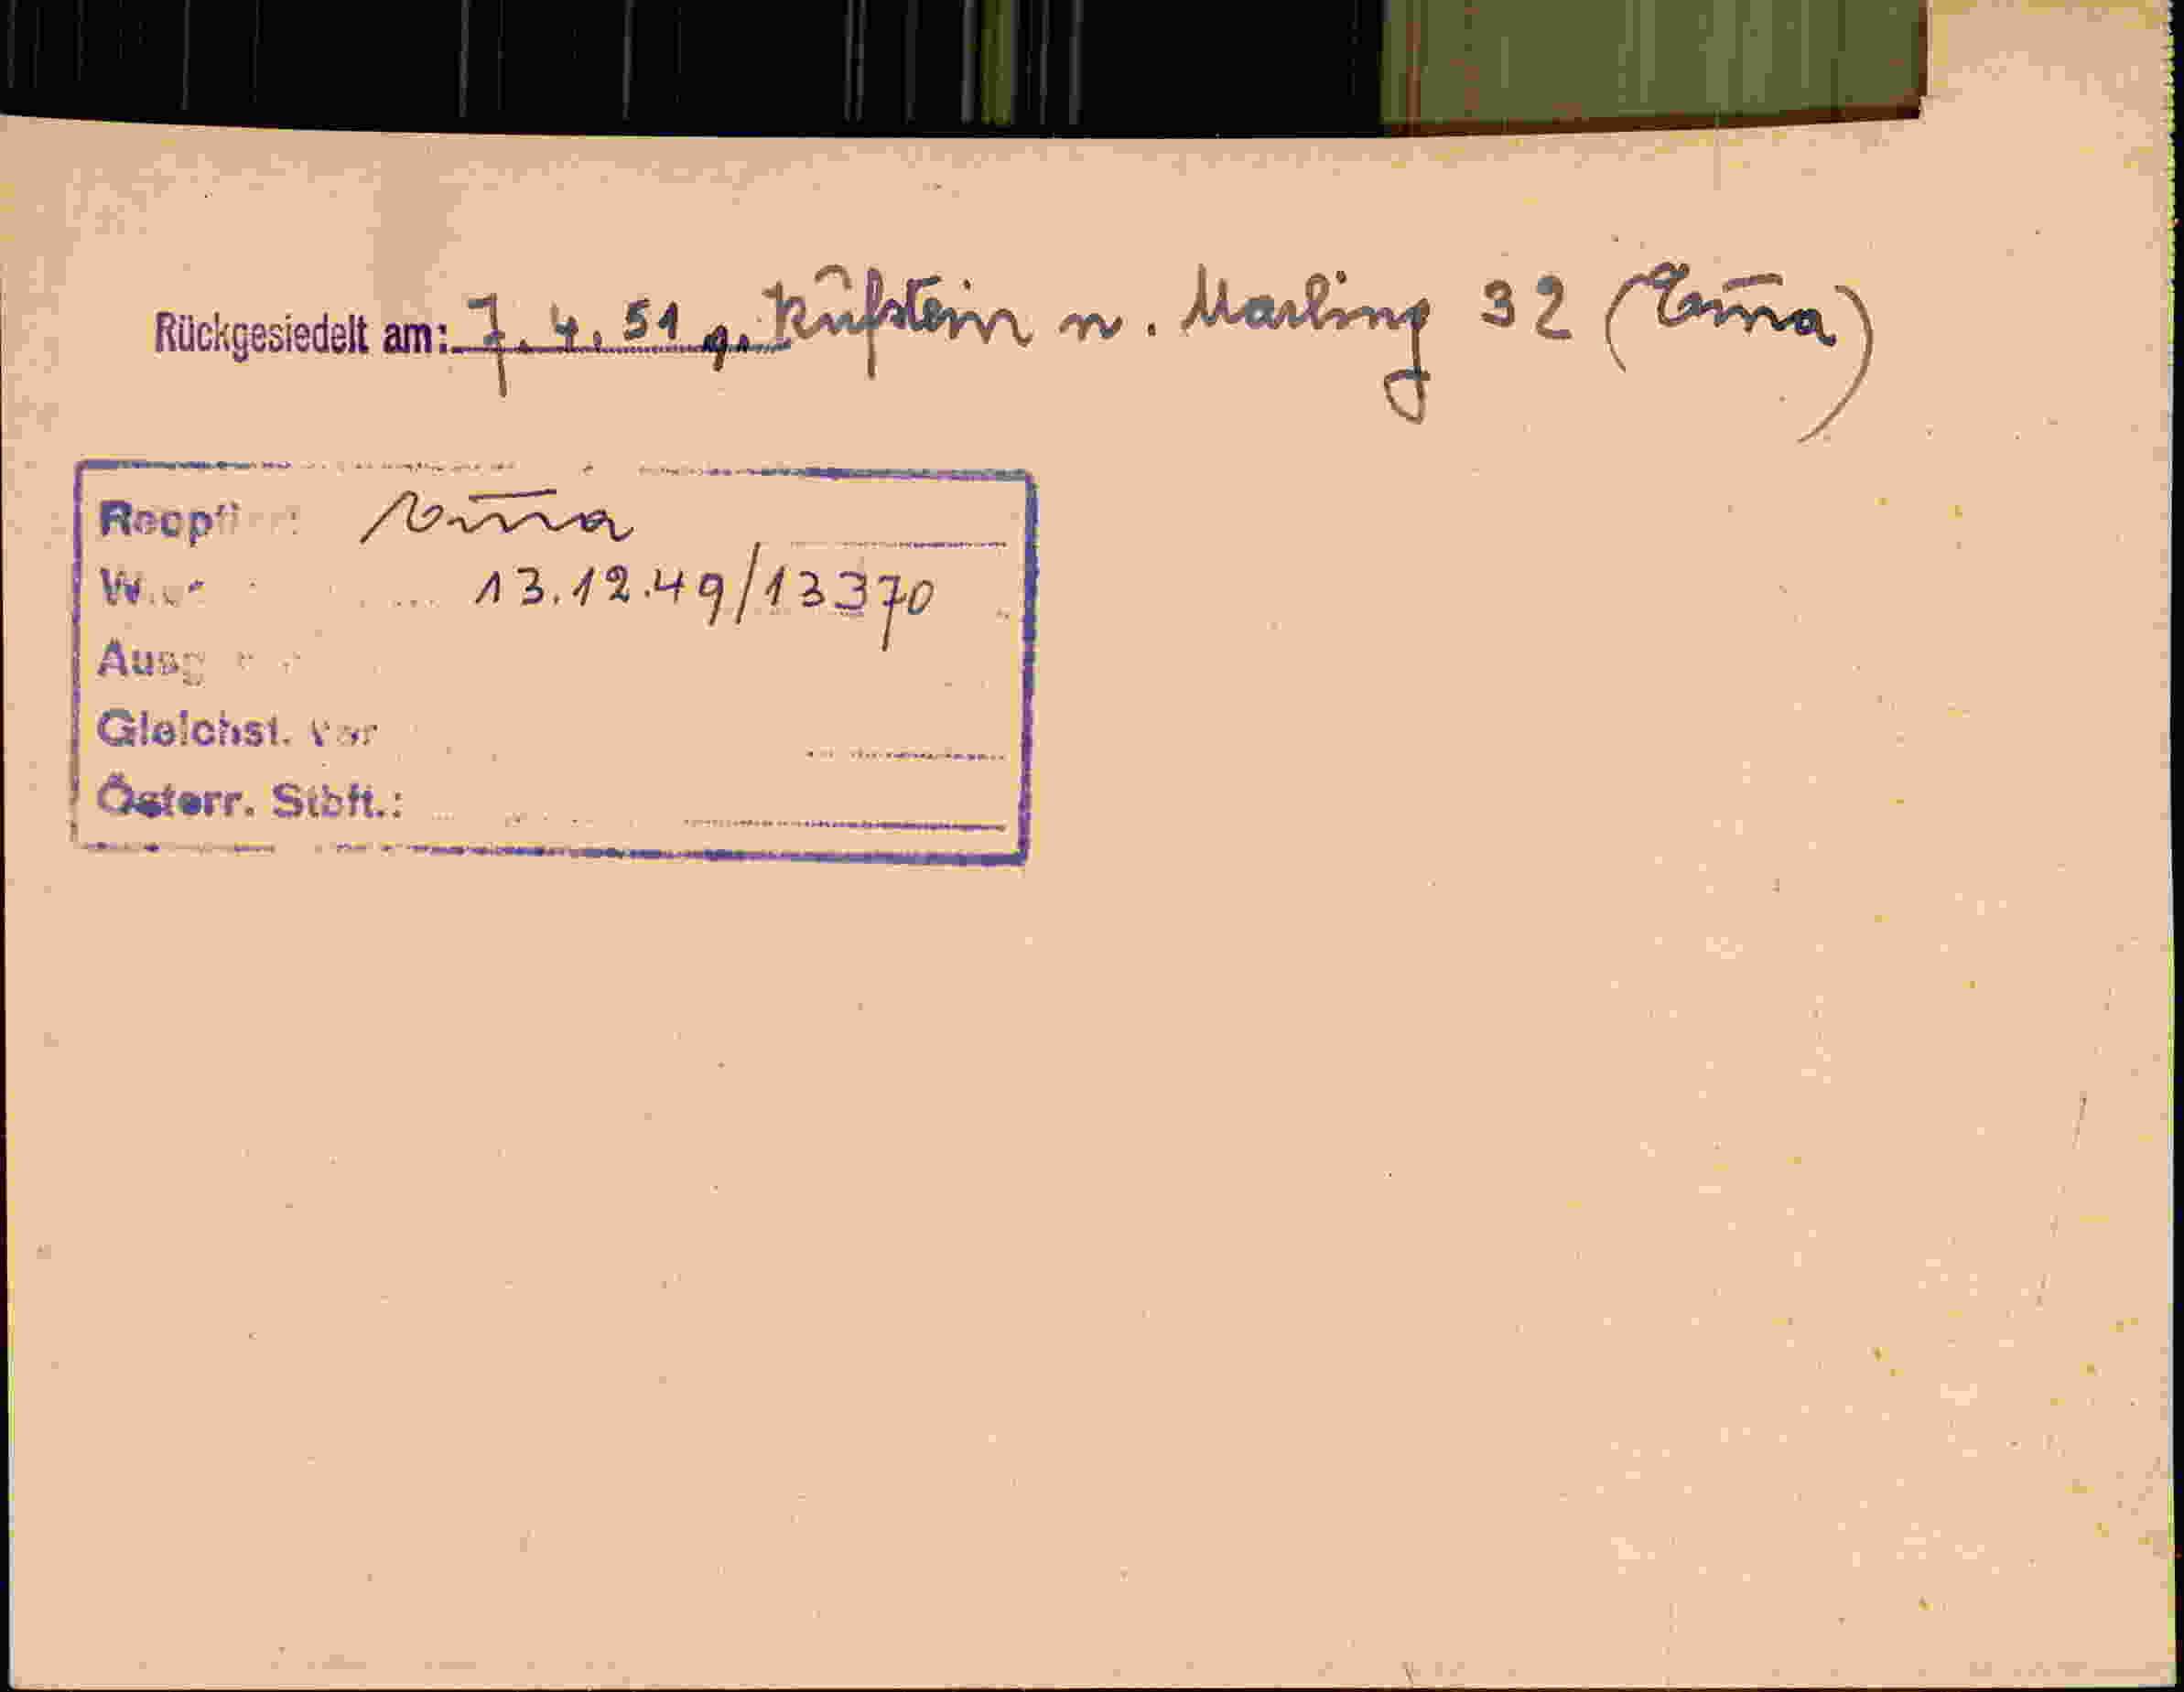 Rückgesiedelt am: 7.4.51 v. Kufstein n. Marling 32 (Emma)
Reoptiert Emma
13.12.49/13370
Gleichst.
Österr. Stbft.: